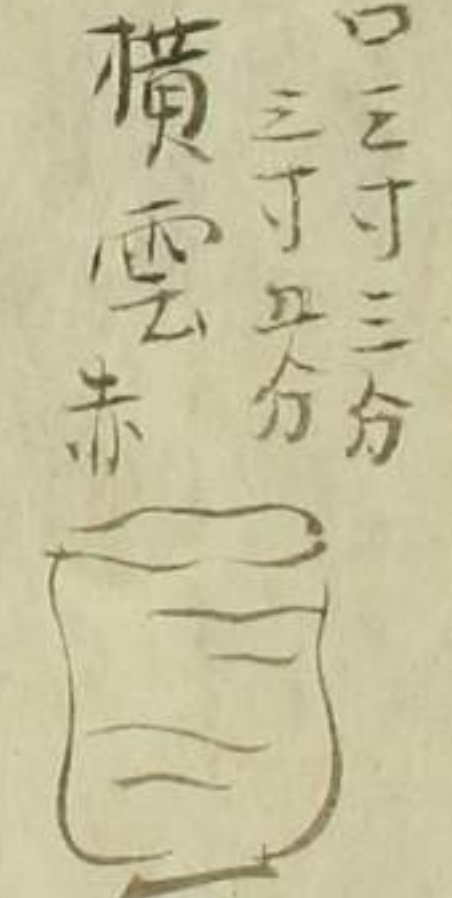 口三寸三分
三寸五分
横雲 赤